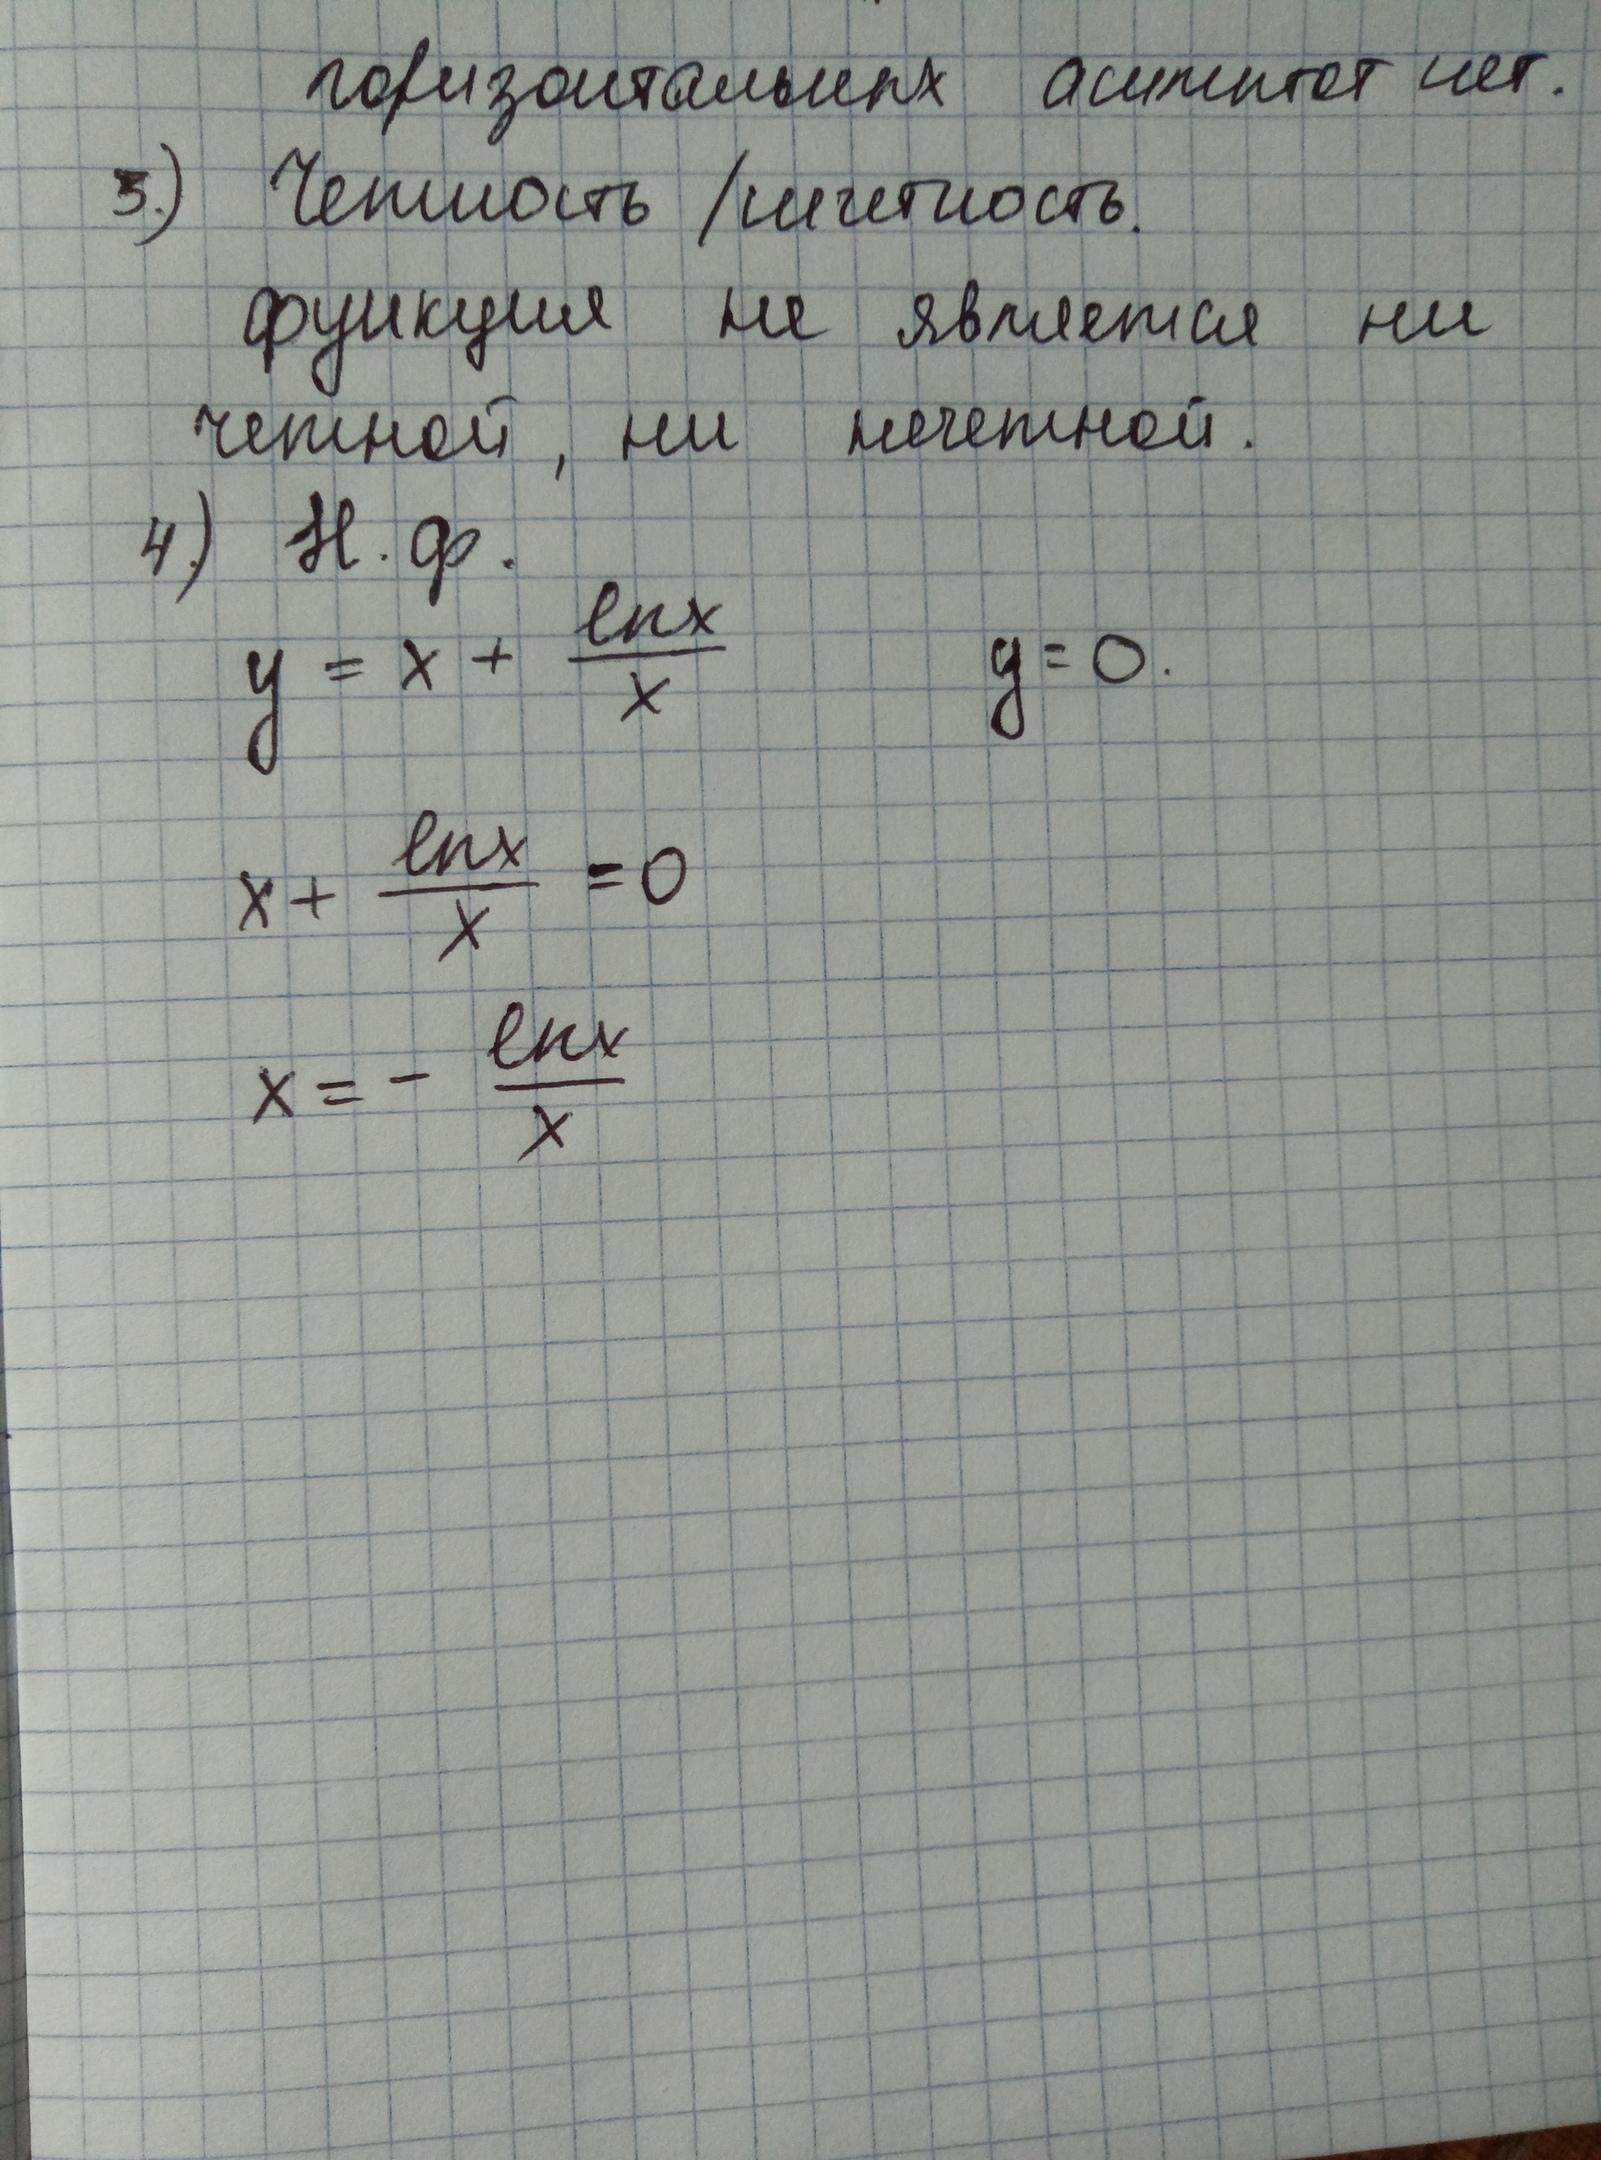 горизонтальных асимптот нет.
3.) Четность /нечетность.
функция не является ни
четной, ни нечетной.
4.) Н. ф.
y = x + lnx/x y = 0.
x + lnx/x = 0
x = - lnx/x